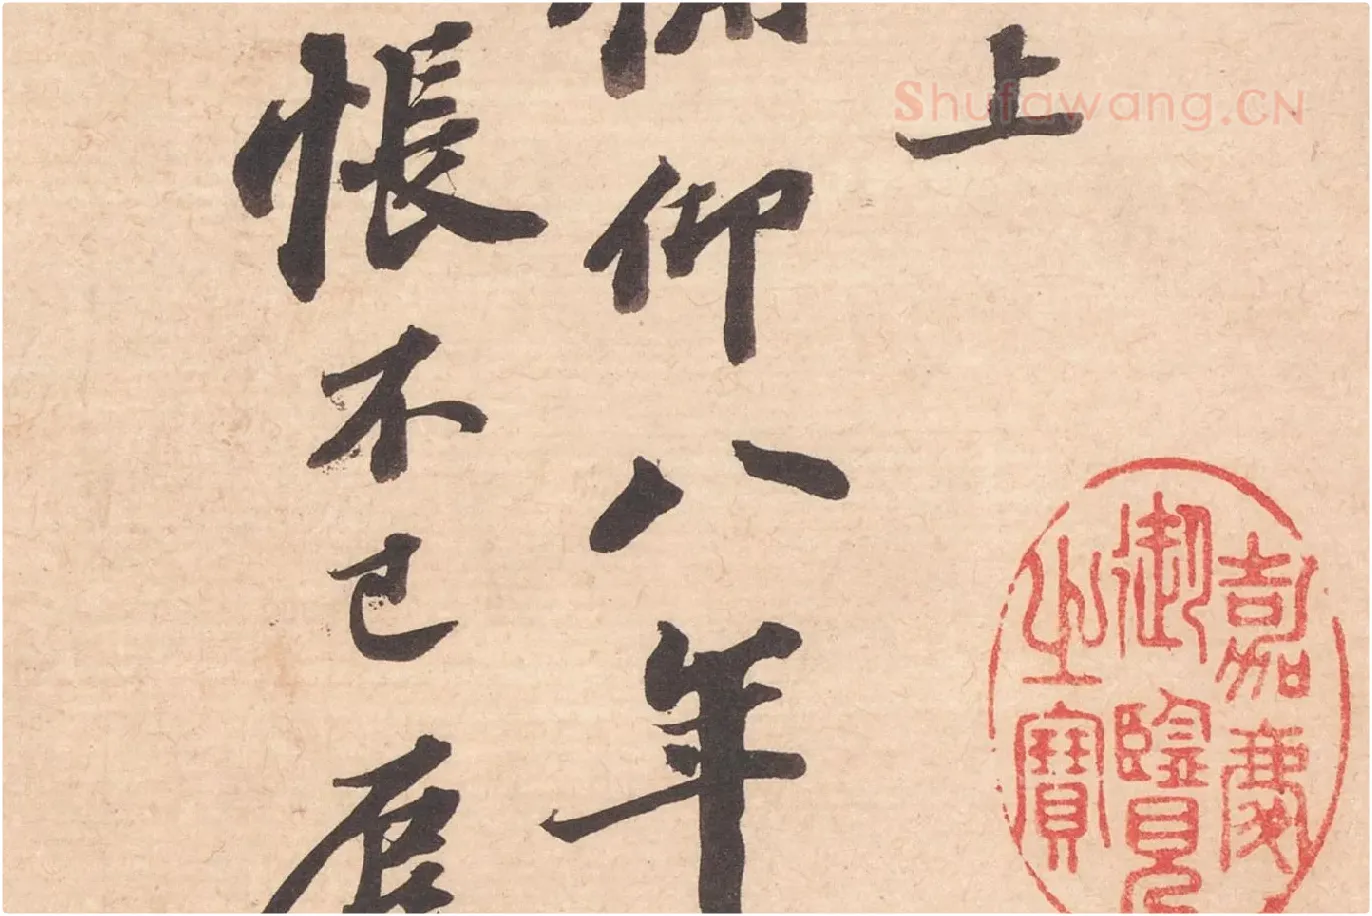 上
仰八年
悵不已
嘉慶
御覽
之寶
Shufawang.CN